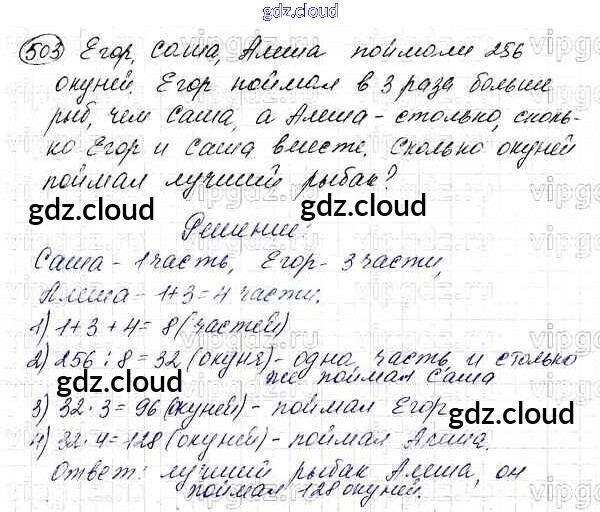 gdz.cloud
503 Егор, Саша, Алеша поймали 256
окуней. Егор поймал в 3 раза больше
рыб, чем Саша, а Алеша - столько, сколь-
ко Егор и Саша вместе. Сколько окуней
поймал лучший рыбак?
gdz.cloud gdz.cloud
Решение:
Саша - 1 часть, Егор - 3 части,
Алеша - 1+3=4 части.
1) 1+3+4=8 (частей)
2) 256:8=32 (окуня) - одна часть и столько
же поймал Саша
gdz.cloud
3) 32·3=96 (окуней) - поймал Егор
gdz.cloud
4) 32·4=128 (окуней) - поймал Алеша.
Ответ: лучший рыбак Алеша, он
поймал 128 окуней.
gdz.cloud